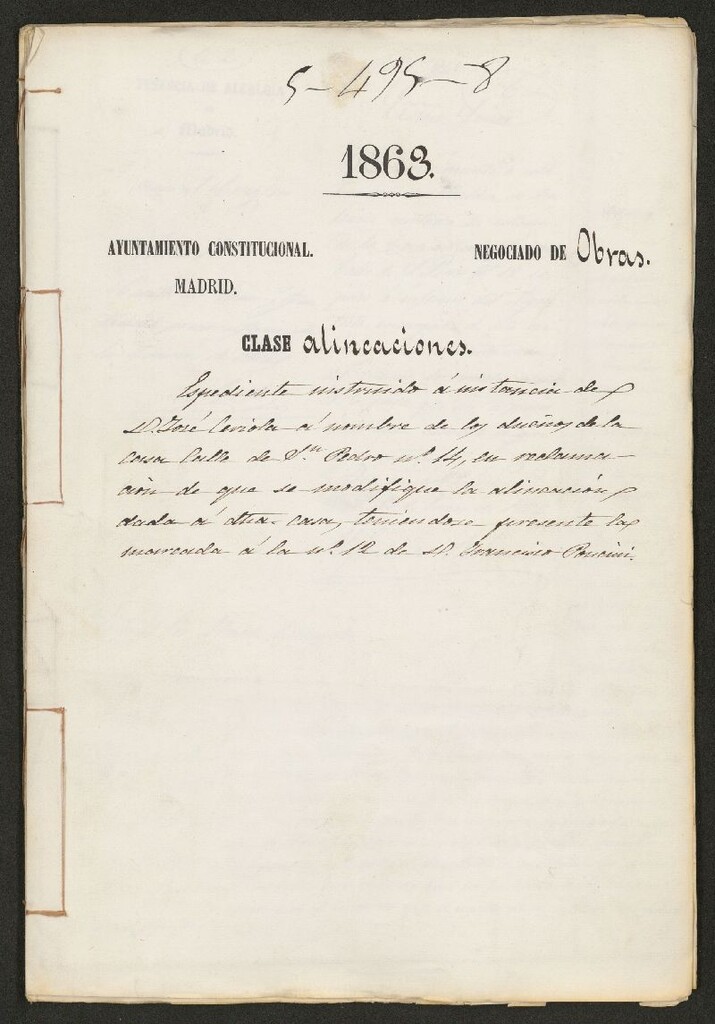 5-495-8
1863.
AYUNTAMIENTO CONSTITUCIONAL.
NEGOCIADO DE Obras.
MADRID.
CLASE alineaciones.
Espediente instruido á instancia de
D. José á nombre de los dueños de la
casa Calle de Sn. Pedro nº 14, en reclama-
ción de que se modifique la alineación
dada á dha. casa, teniendose presente la
marcada á la nº 12 de D. Francisco